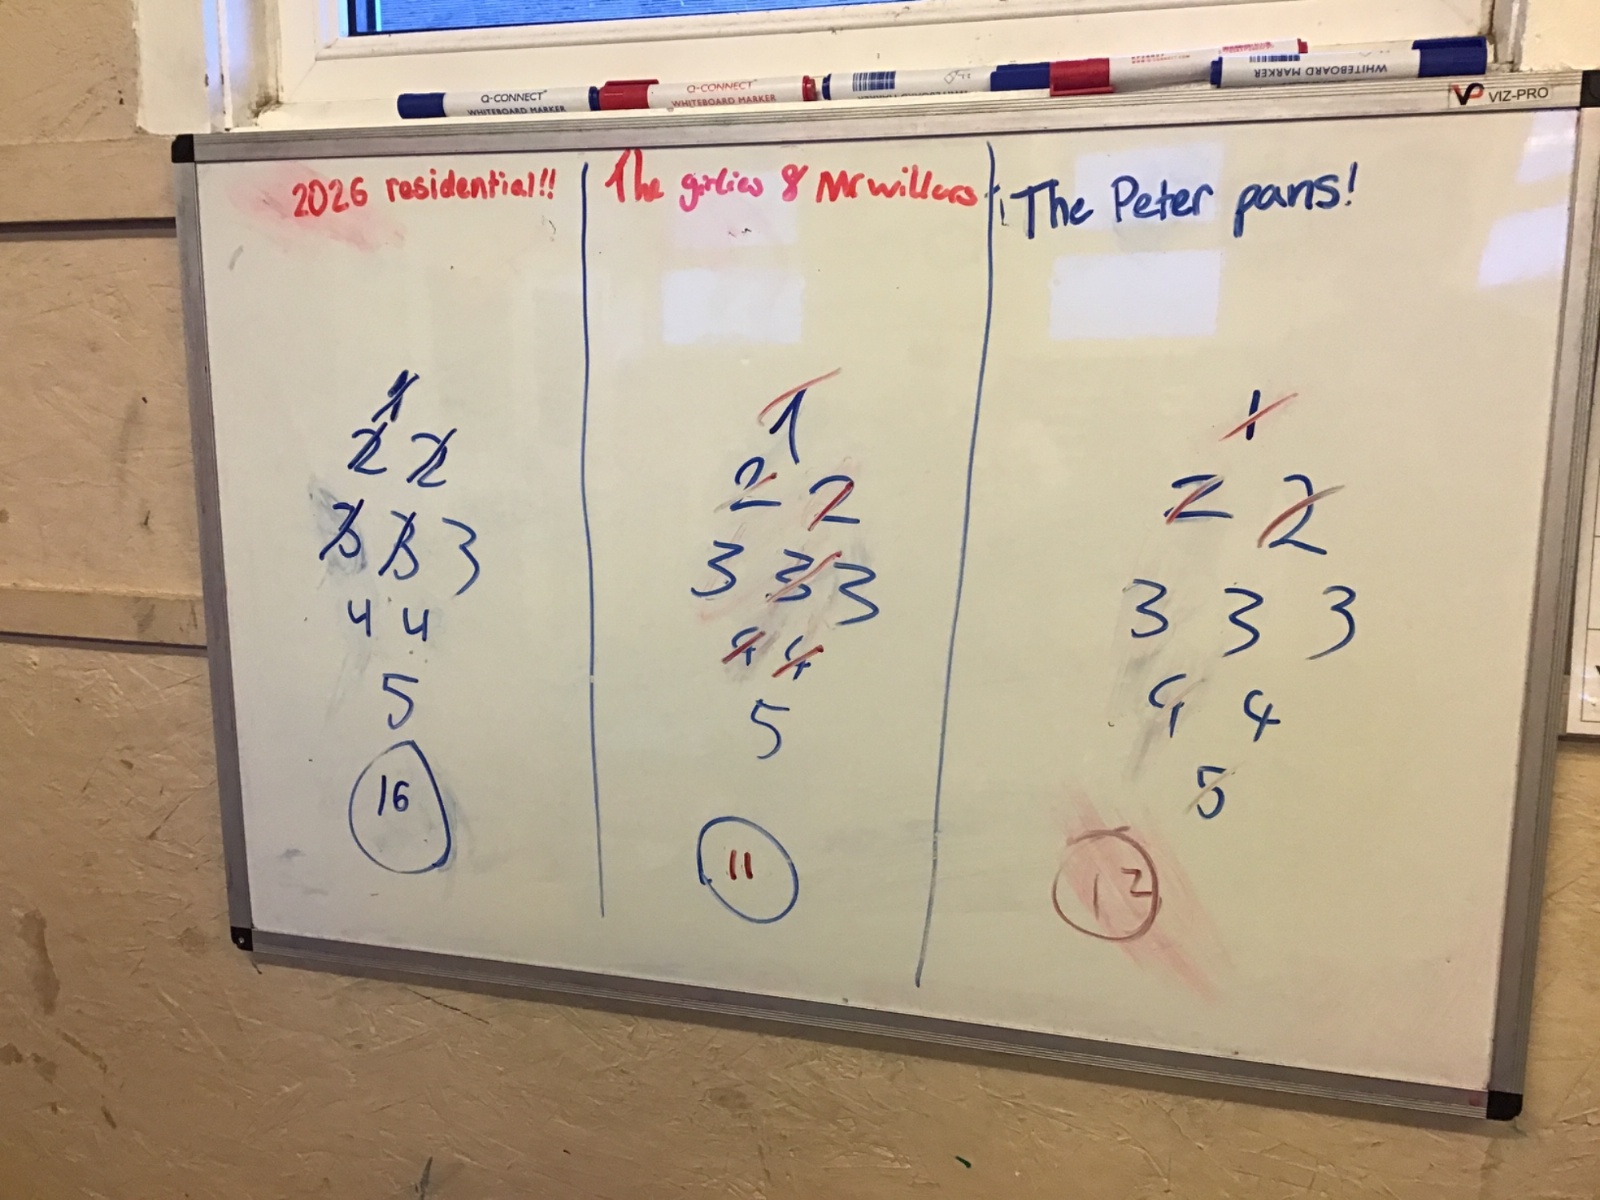 Q-CONNECT
WHITEBOARD MARKER
Q-CONNECT
WHITEBOARD MARKER
WHITEBOARD MARKER
VIZ-PRO
2026 residential!!
1
2 2
3 3 3
4 4
5
16
The girlies & Mr willers
1
2 2
3 3 3
4 4
5
11
The Peter pans!
1
2 2
3 3 3
4 4
5
12